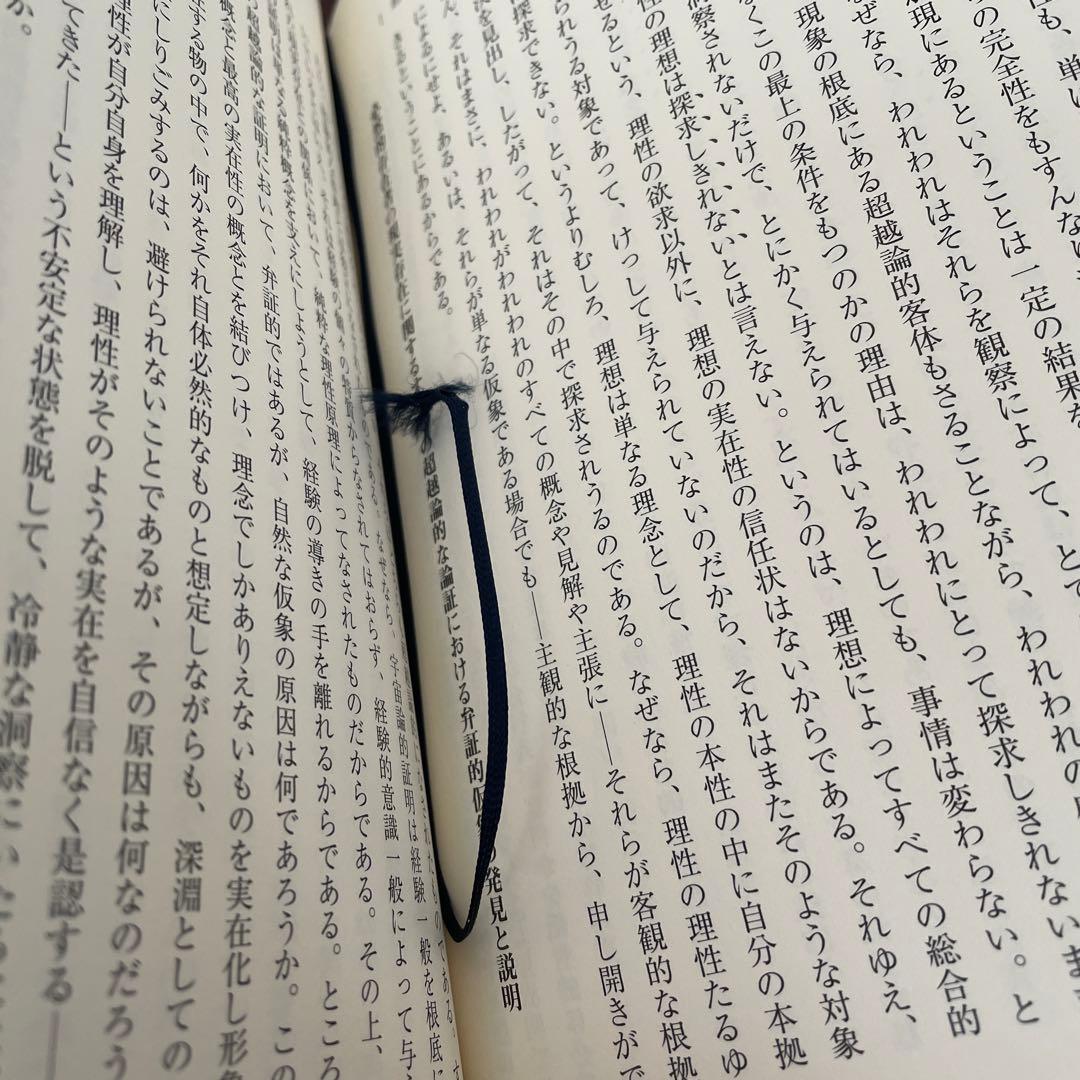 性も、単に
の完全性をもすんない
現にあるということは一定の結果を
なぜなら、われわれはそれらを観察によって、とて
現象の根底にある超越論的客体もさることながら、われわれの
くこの最上の条件をもつのかの理由は、われわれにとって探求しきれないま
洞察されないだけで、とにかく与えられてはいるとしても、事情は変わらない。と
性の理想は探求しきれないとは言えない。というのは、理想によってすべての総合的
せるという、理性の欲求以外に、理想の実在性の信任状はないからである。それゆえ、
られうる対象であって、けっして与えられていないのだから、それはまたそのような対象
探求できない。というよりむしろ、理想は単なる理念として、理性の本性の中に自分の本拠
を見出し、したがって、それはその中で探求されうるのである。なぜなら、理性の理性たるゆ
ん、それはまさに、われわれがわれわれのすべての概念や見解や主張に——それらが客観的な根拠
によるにせよ、あるいは、それらが単なる仮象である場合でも——主観的な根拠から、申し開きがで
きるということにあるからである。
必然的存在者の現実存在に関する
超越論的な論証における弁証的仮象の発見と説明
になされたものである。す
なぜなら、宇宙論的証明は経験一般を根底に
の特質からなされてはおらず、経験的意識一般によって与え
において、純粋な理性原理によってなされたものだからである。その上、
純粋概念を支えにしようとして、経験の導きの手を離れるからである。ところ
超越論的な証明において、弁証的ではあるが、自然な仮象の原因は何であろうか。この
概念と最高の実在性の概念とを結びつけ、理念でしかありえないものを実在化し形象
する物の中で、何かをそれ自体必然的なものと想定しながらも、深淵としての
にしりごみするのは、避けられないことであるが、その原因は何なのだろう
性が自分自身を理解し、理性がそのような実在を自信なく是認する——
てきた——という不安定な状態を脱して、冷静な洞察にいたる
か。